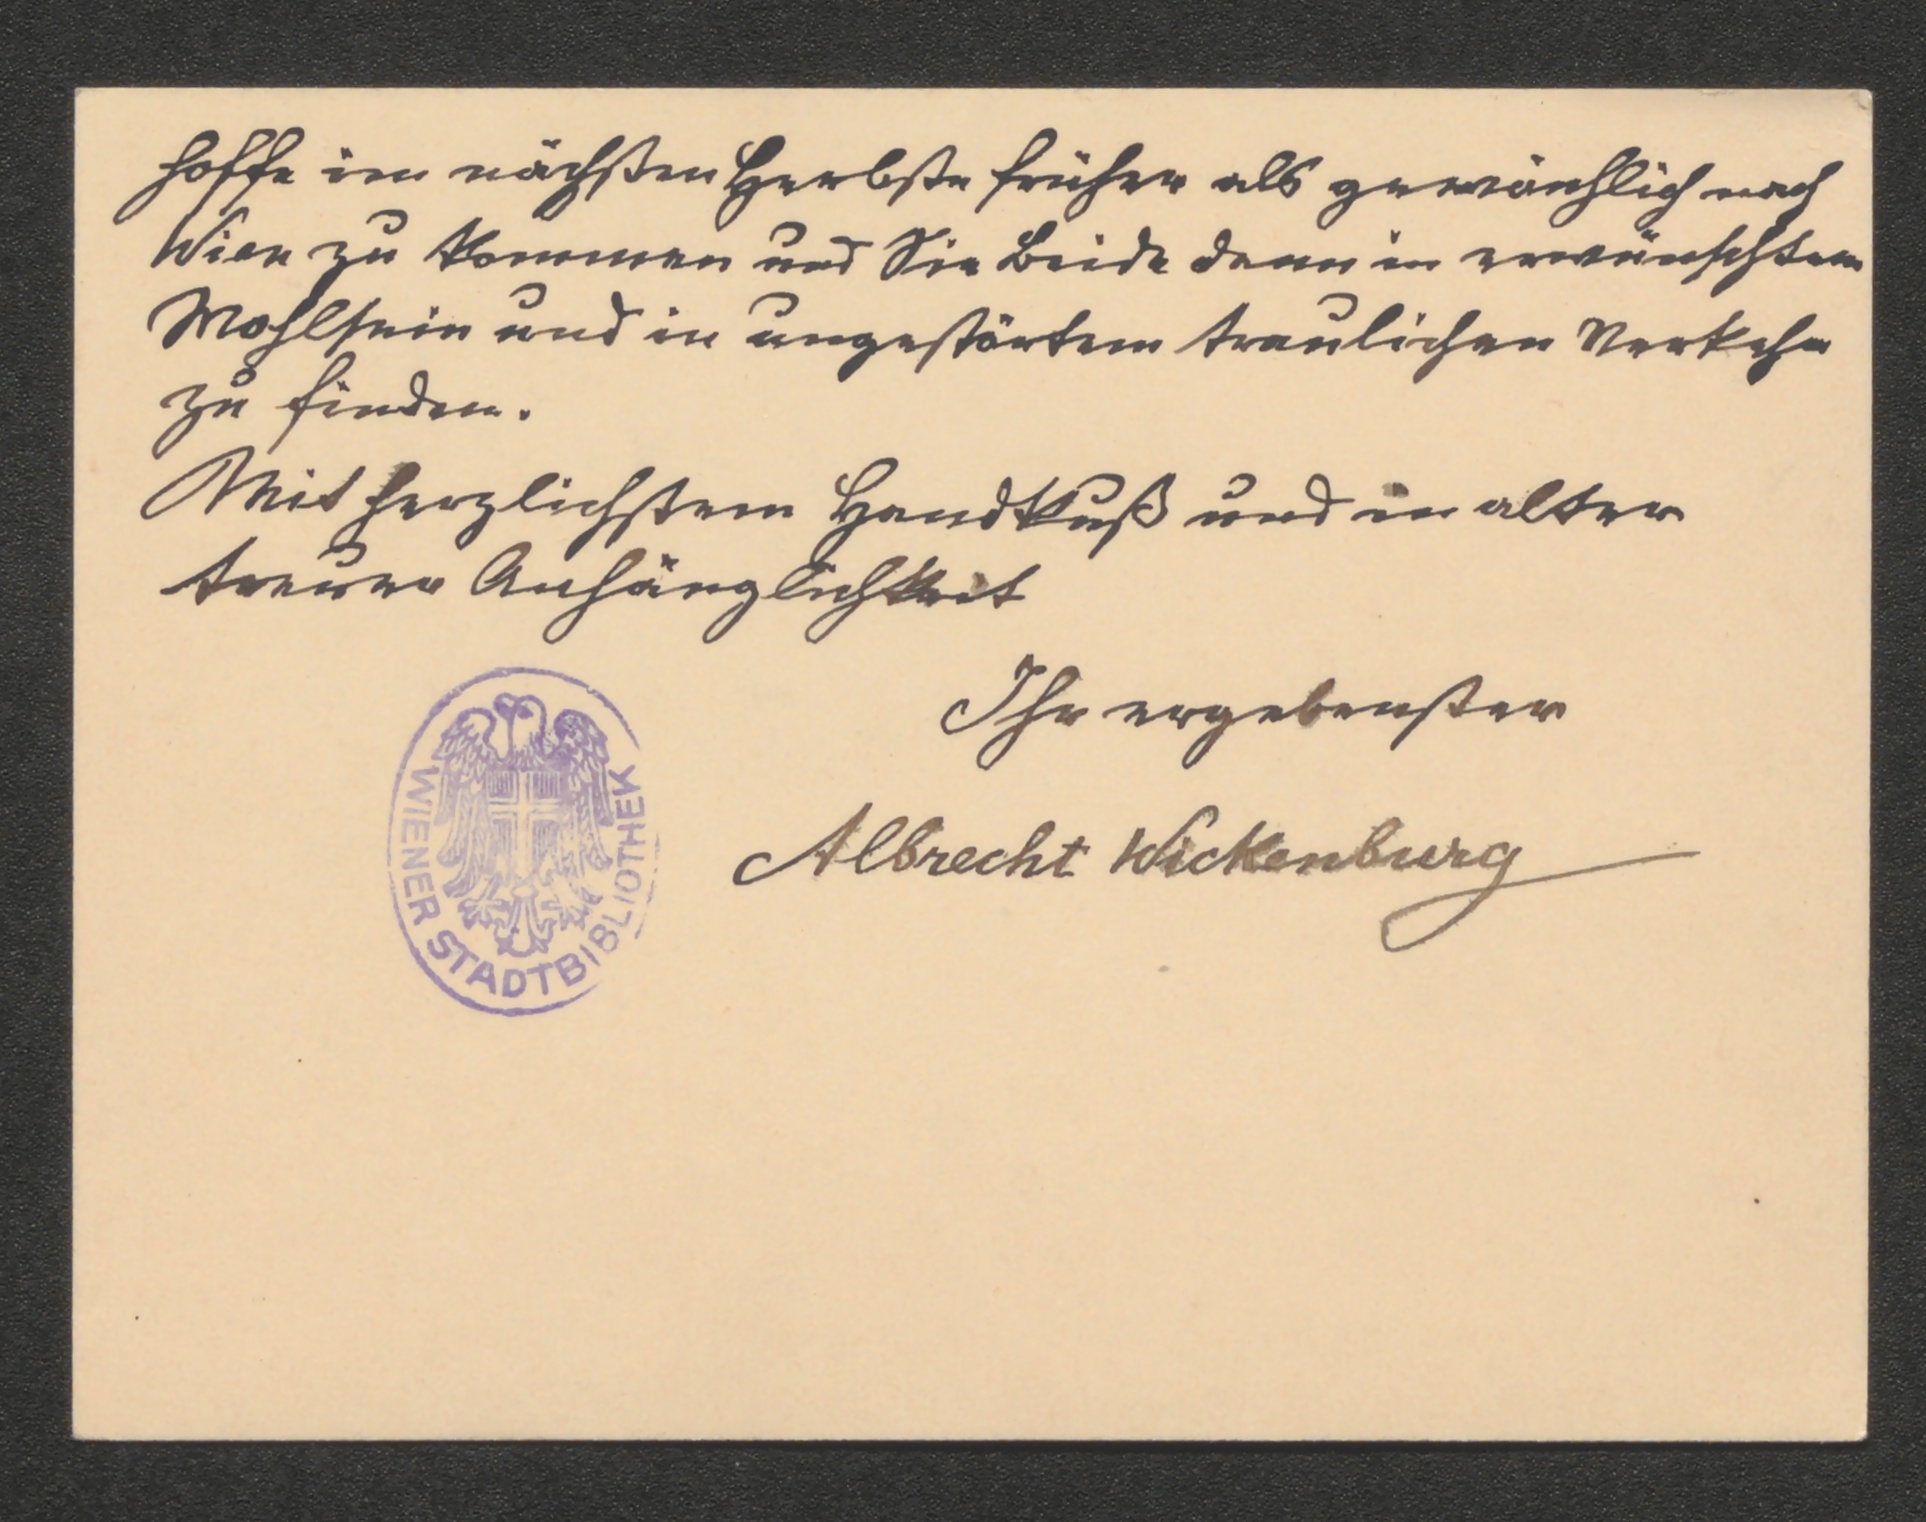 hoffe im nächsten Herbste früher als gewöhnlich nach
Wien zu kommen und Sie Beide dann in erwünschtem
Wohlsein und in ungestörtem traulichen Verkehr
zu finden.
Mit herzlichstem Handkuß und in alter
treuer Anhänglichkeit
Ihr ergebenster
Albrecht Wickenburg
WIENER STADTBIBLIOTHEK